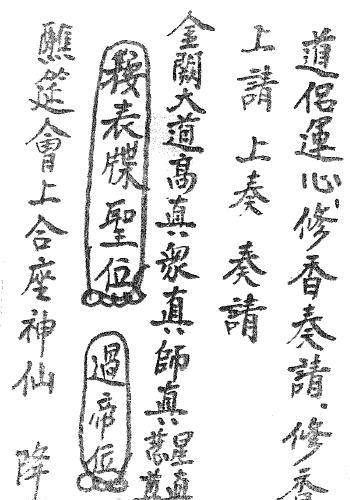 道侶運心修香奏請修香
上請上奏奏請
金闕大道高真眾真師真星真
按表牒聖位
過帝位
醮筵會上合座神仙降